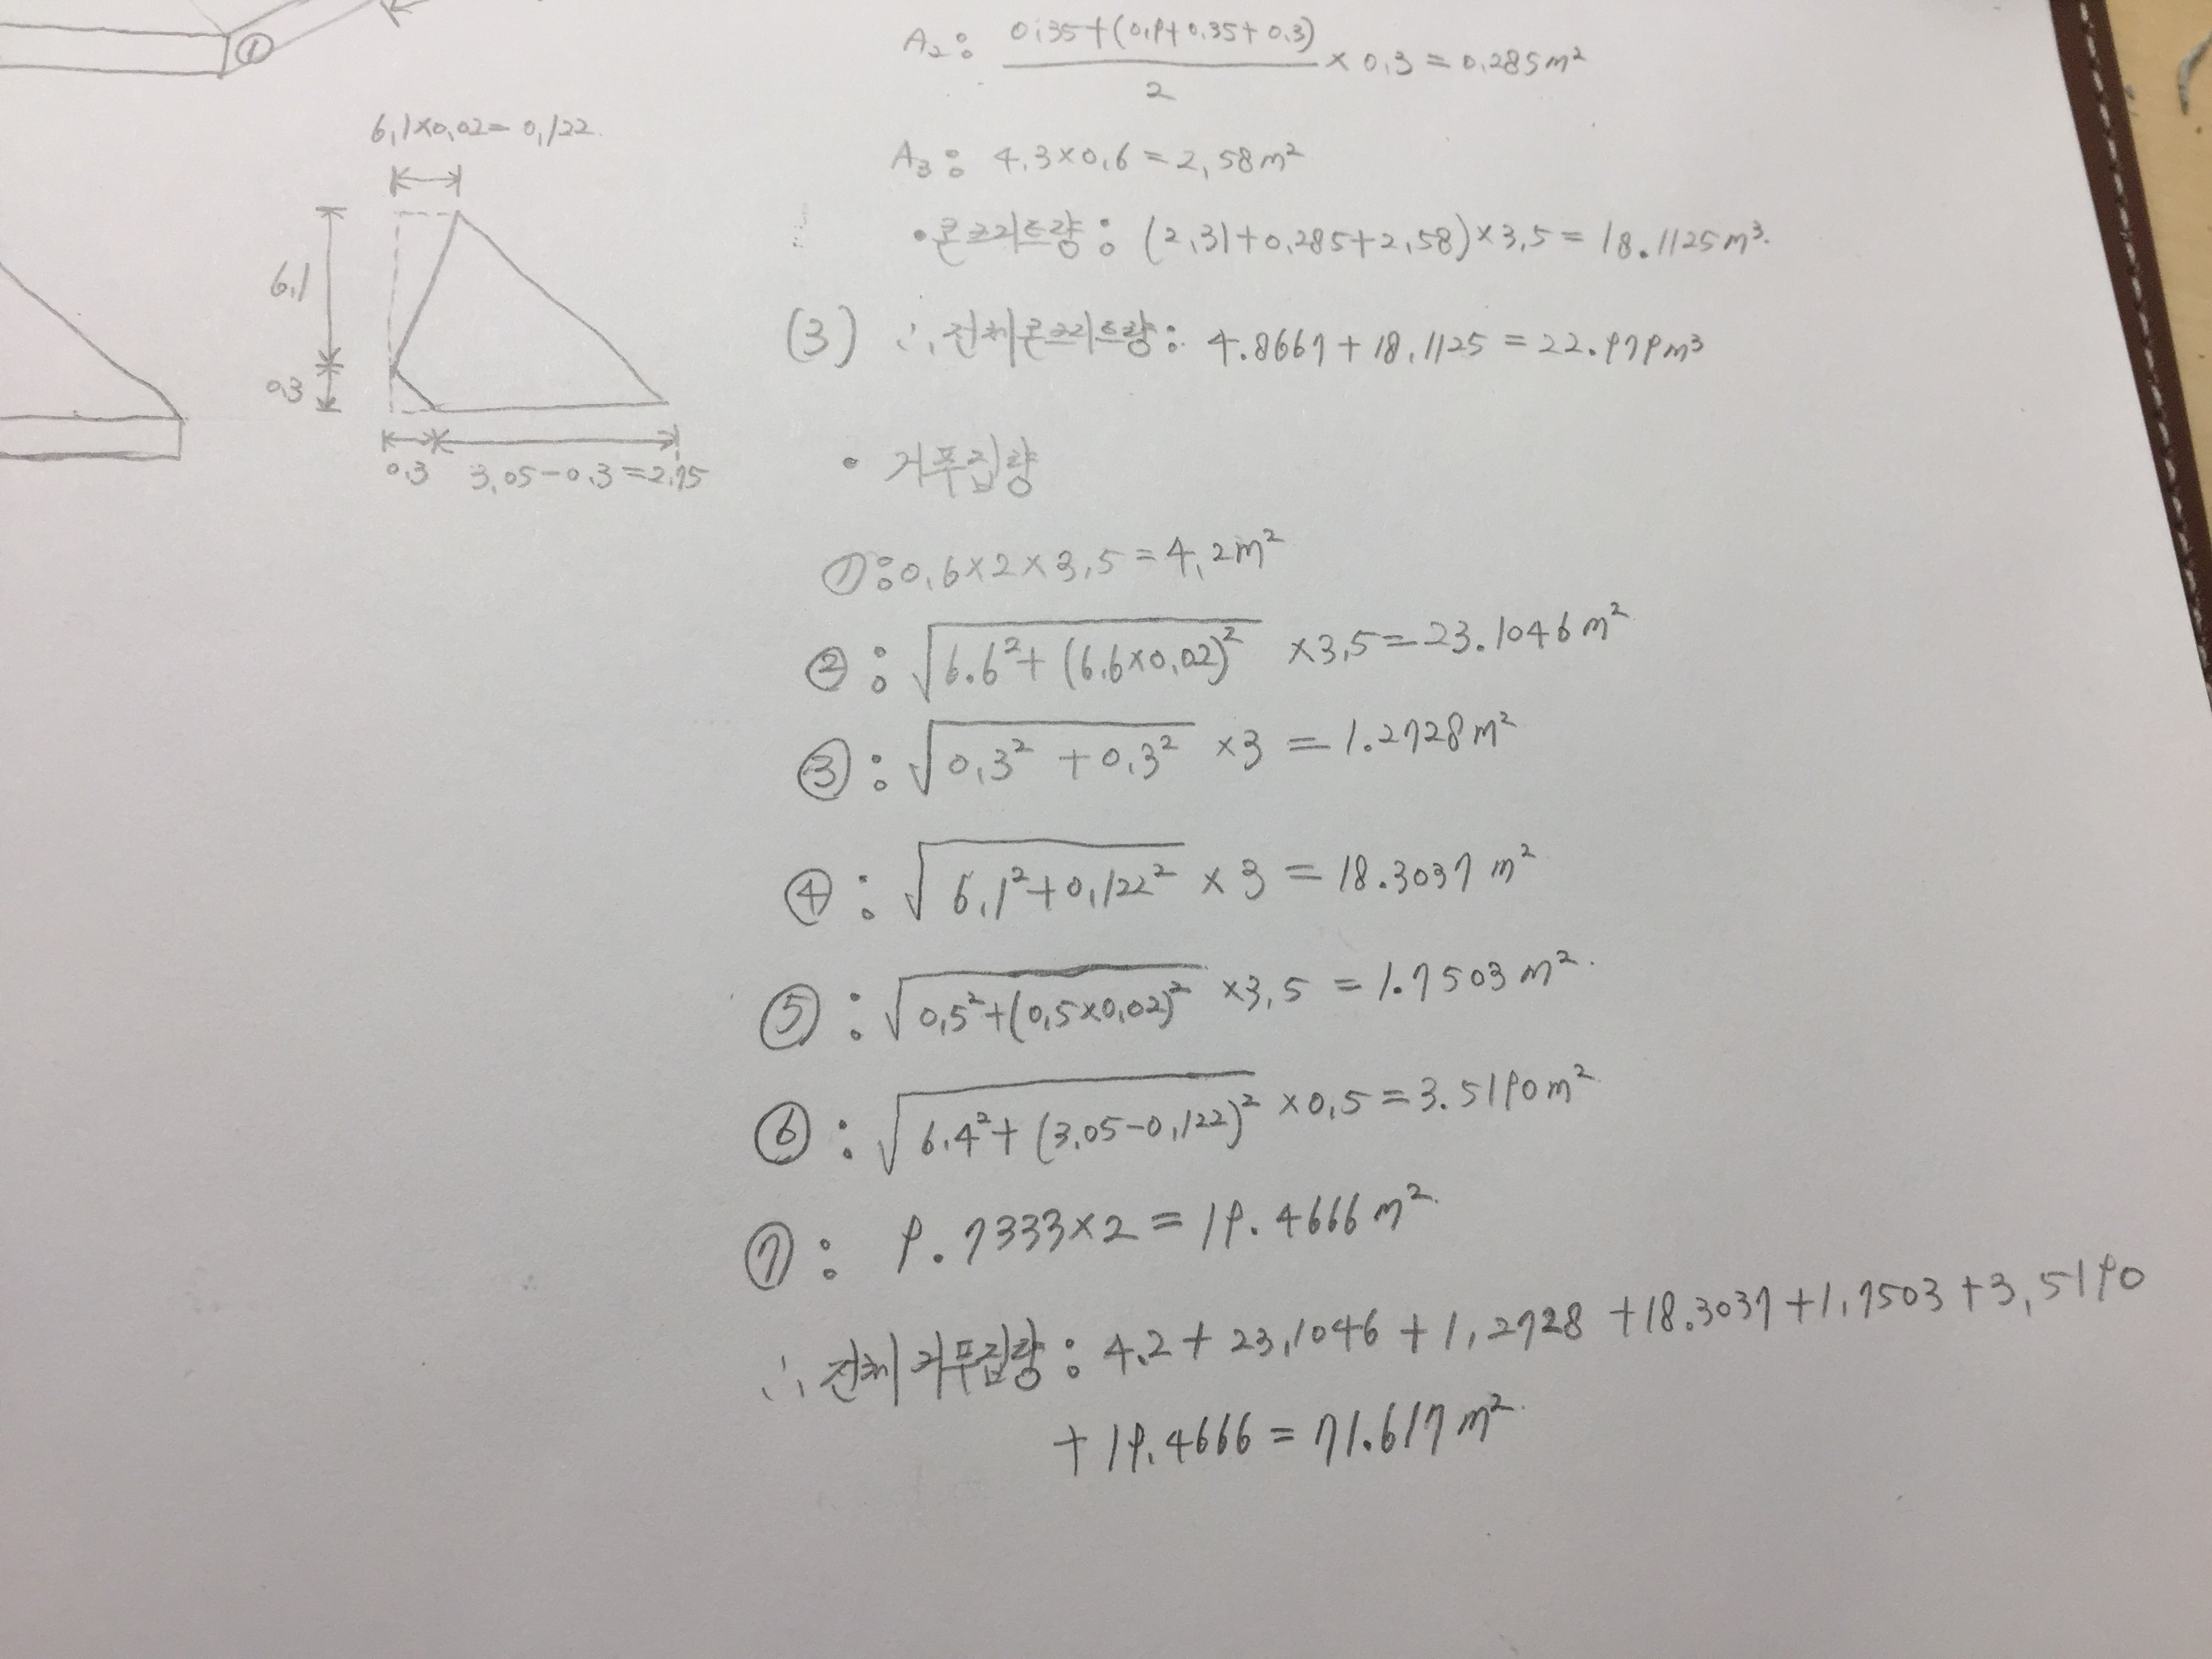 ①
6.1×0.02=0.122
6.1
0.3
0.3
3.05-0.3=2.75
A₂: (0.35+(0.9+0.35+0.3))/2 × 0.3 = 0.285m²
A₃: 4.3×0.6=2.58m²
•콘크리트량: (2.31+0.285+2.58)×3.5=18.1125m³.
(3) ∴ 전체콘크리트량: 4.8667+18.1125=22.979m³
• 거푸집량
①:0.6×2×3.5=4.2m²
②: √(6.6²+(6.6×0.02)²) ×3.5=23.1046m²
③: √(0.3²+0.3²) ×3 = 1.2728m²
④: √(6.1²+0.122²) ×3 = 18.3037m²
⑤: √(0.5²+(0.5×0.02)²) ×3.5 = 1.7503m².
⑥: √(6.4²+(3.05-0.122)²) ×0.5=3.5190m²
⑦: 9.7333×2=19.4666m²
∴ 전체거푸집량: 4.2+23.1046+1.2728+18.3037+1.7503+3.5190
+19.4666=71.617m²